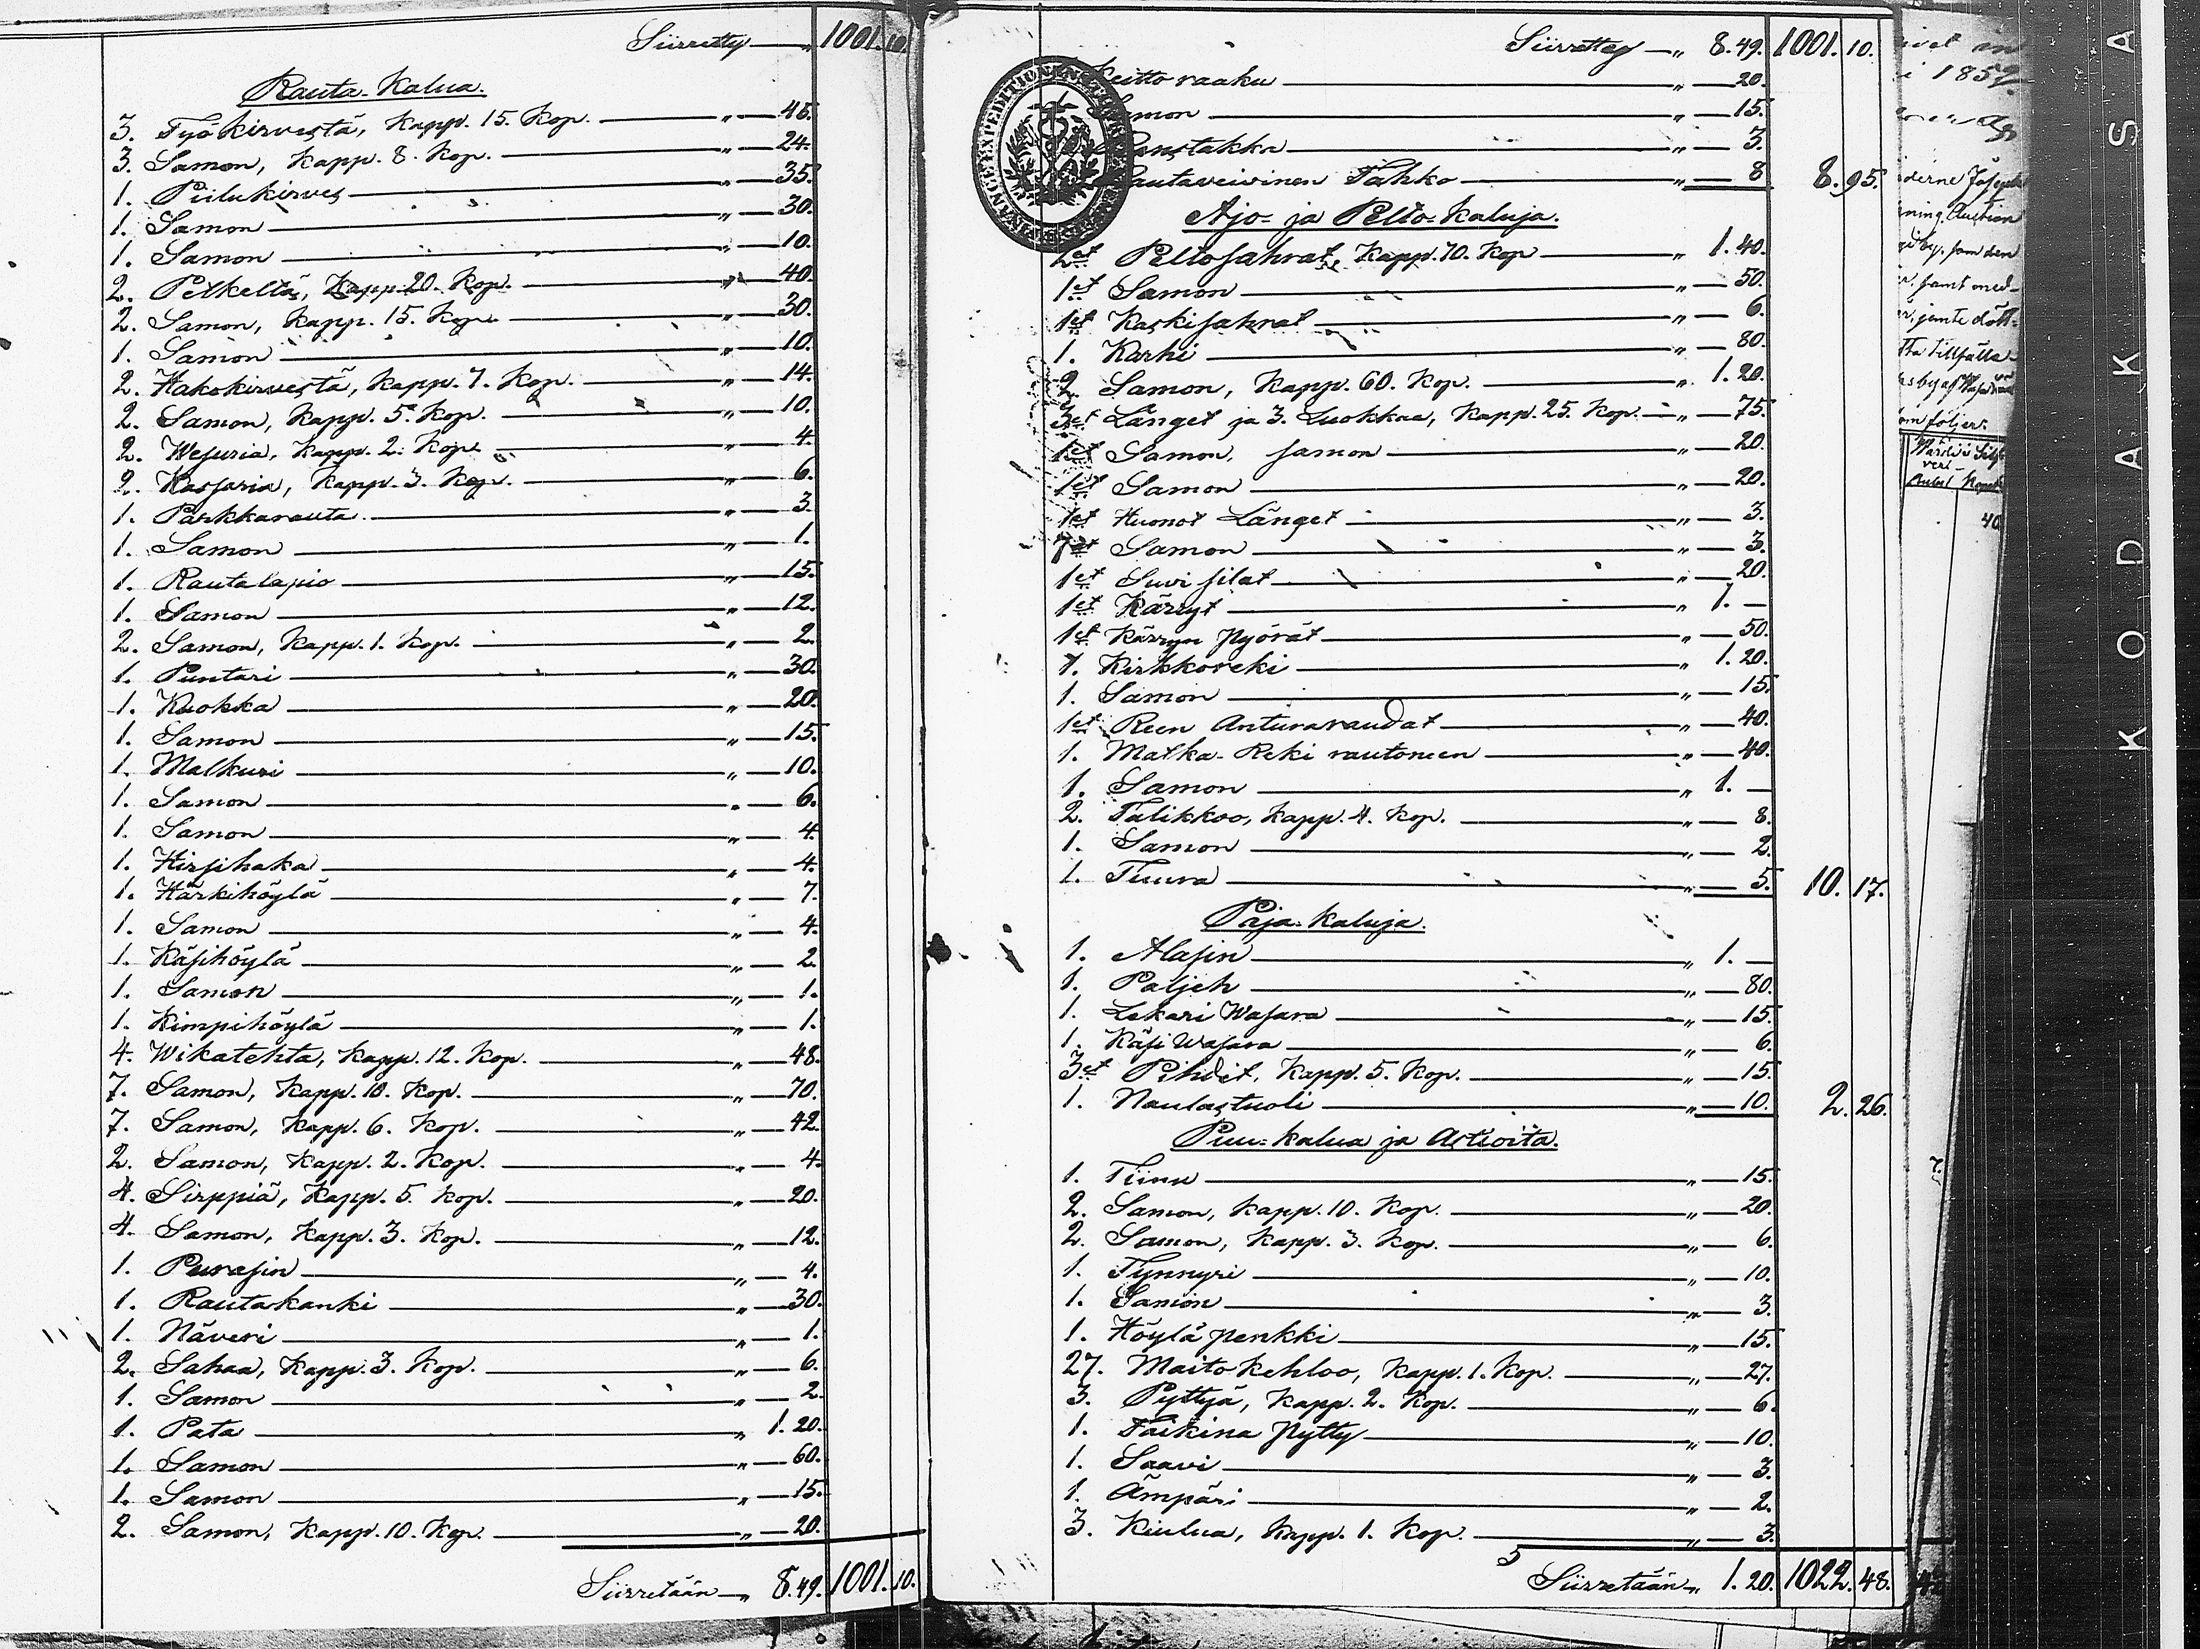 Siirretty — „ 1001. 10.
Rauta-Kalua.
3. Työkirvestä, Kapp. 15. Kop. — „ — 45.
3. Samon, Kapp. 8. Kop. — „ — 24.
1. Piilukirves — „ — 35.
1. Samon — „ — 30.
1. Samon — „ — 10.
2. Petkeltä, Kapp. 20. Kop. — „ — 40.
2. Samon, Kapp. 15. Kop. — „ — 30.
1. Samon — „ — 10.
2. Hakokirvestä, Kapp. 7. Kop. — „ — 14.
2. Samon, Kapp. 5. Kop. — „ — 10.
2. Wesuria, Kapp. 2. Kop. — „ — 4.
2. Kassaria, Kapp. 3. Kop. — „ — 6.
1. Parkkarauta — „ — 3.
1. Samon — „ — 1.
1. Rautalapio — „ — 15.
1. Samon — „ — 12.
2. Samon, Kapp. 1. Kop. — „ — 2.
1. Puntari — „ — 30.
1. Kuokka — „ — 20.
1. Samon — „ — 15.
1. Malkuri — „ — 10.
1. Samon — „ — 6.
1. Samon — „ — 4.
1. Hirsihaka — „ — 4.
1. Härkihöylä — „ — 7.
1. Samon — „ — 4.
1. Käsihöylä — „ — 2.
1. Samon — „ — 1.
1. Kimpihöylä — „ — 1.
4. Wikatehta, Kapp. 12. Kop. — „ — 48.
7. Samon, Kapp. 10. Kop. — „ — 70.
7. Samon, Kapp. 6. Kop. — „ — 42.
2. Samon, Kapp. 2. Kop. — „ — 4.
4. Sirppiä, Kapp. 5. Kop. — „ — 20.
4. Samon, Kapp. 3. Kop. — „ — 12.
1. Purasin — „ — 4.
1. Rautakanki — „ — 30.
1. Näveri — „ — 1.
2. Sahaa, Kapp. 3. Kop. — „ — 6.
1. Samon — „ — 2.
1. Pata — „ 1. 20.
1. Samon — „ — 60.
1. Samon — „ — 15.
2. Samon, Kapp. 10. Kop. — „ — 20.
Siirretään — „ 8. 49. 1001. 10.
Siirretty — „ 8. 49. 1001. 10.
Keitto raaku — „ — 20.
Samon — „ — 15.
— „ — 3.
Rautaveivinen Tahko — „ — 8 8. 95.
Ajo- ja Pelto-Kaluja.
2et Peltosahrat, Kapp. 70. Kop — „ 1. 40.
1et Samon — „ — 50.
1et Kaskisahrat — „ — 6.
1. Karhi — „ — 80.
2. Samon, Kapp. 60. Kop. — „ 1. 20.
3et Länget ja 3. Luokkaa, Kapp. 25. Kop. — „ — 75.
1et Samon, samon — „ — 20.
1et Samon — „ — 20.
1et Huonot Länget — „ — 3.
1et Samon — „ — 3.
1et Suvi silat — „ — 20.
1et Kärryt — „ 1. —
1et Kärryn Pyörät — „ — 50.
1. Kirkkoreki — „ 1. 20.
1. Samon — „ — 15.
1et Reen Anturaraudat — „ — 40.
1. Matka-Reki rautoneen — „ — 40.
1. Samon — „ 1. —
2. Talikkoo, Kapp. 4. Kop. — „ — 8.
1. Samon — „ — 2.
1. Tuura — „ — 5. 10. 17.
Paja-kaluja.
1. Alasin — „ 1. —
1. Paljeh — „ — 80.
1. Lekari Wasara — „ — 15.
1. Käsi Wasara — „ — 6.
3et Pihdit, Kapp. 5. Kop. — „ — 15.
1. Naulastuoli — „ — 10. 2. 26.
Puu-kalua ja Astioita.
1. Tiinu — „ — 15.
2. Samon, Kapp. 10. Kop. — „ — 20.
2. Samon, Kapp. 3. Kop. — „ — 6.
1. Tynnyri — „ — 10.
1. Samon — „ — 3.
1. Höylä penkki — „ — 15.
27. Maito Kehloo, Kapp. 1. Kop. — „ — 27.
3. Pyttyä, Kapp. 2. Kop. — „ — 6.
1. Taikina Pytty — „ — 10.
1. Saavi — „ — 3.
1. Ämpäri — „ — 2.
3. Kiulua, Kapp. 1. Kop. — „ — 3.
5
Siirretään „ 1. 20. 1022. 48.
i 1852
jemte dött-
tta tillfälle
om följer:
40
KODAK SA